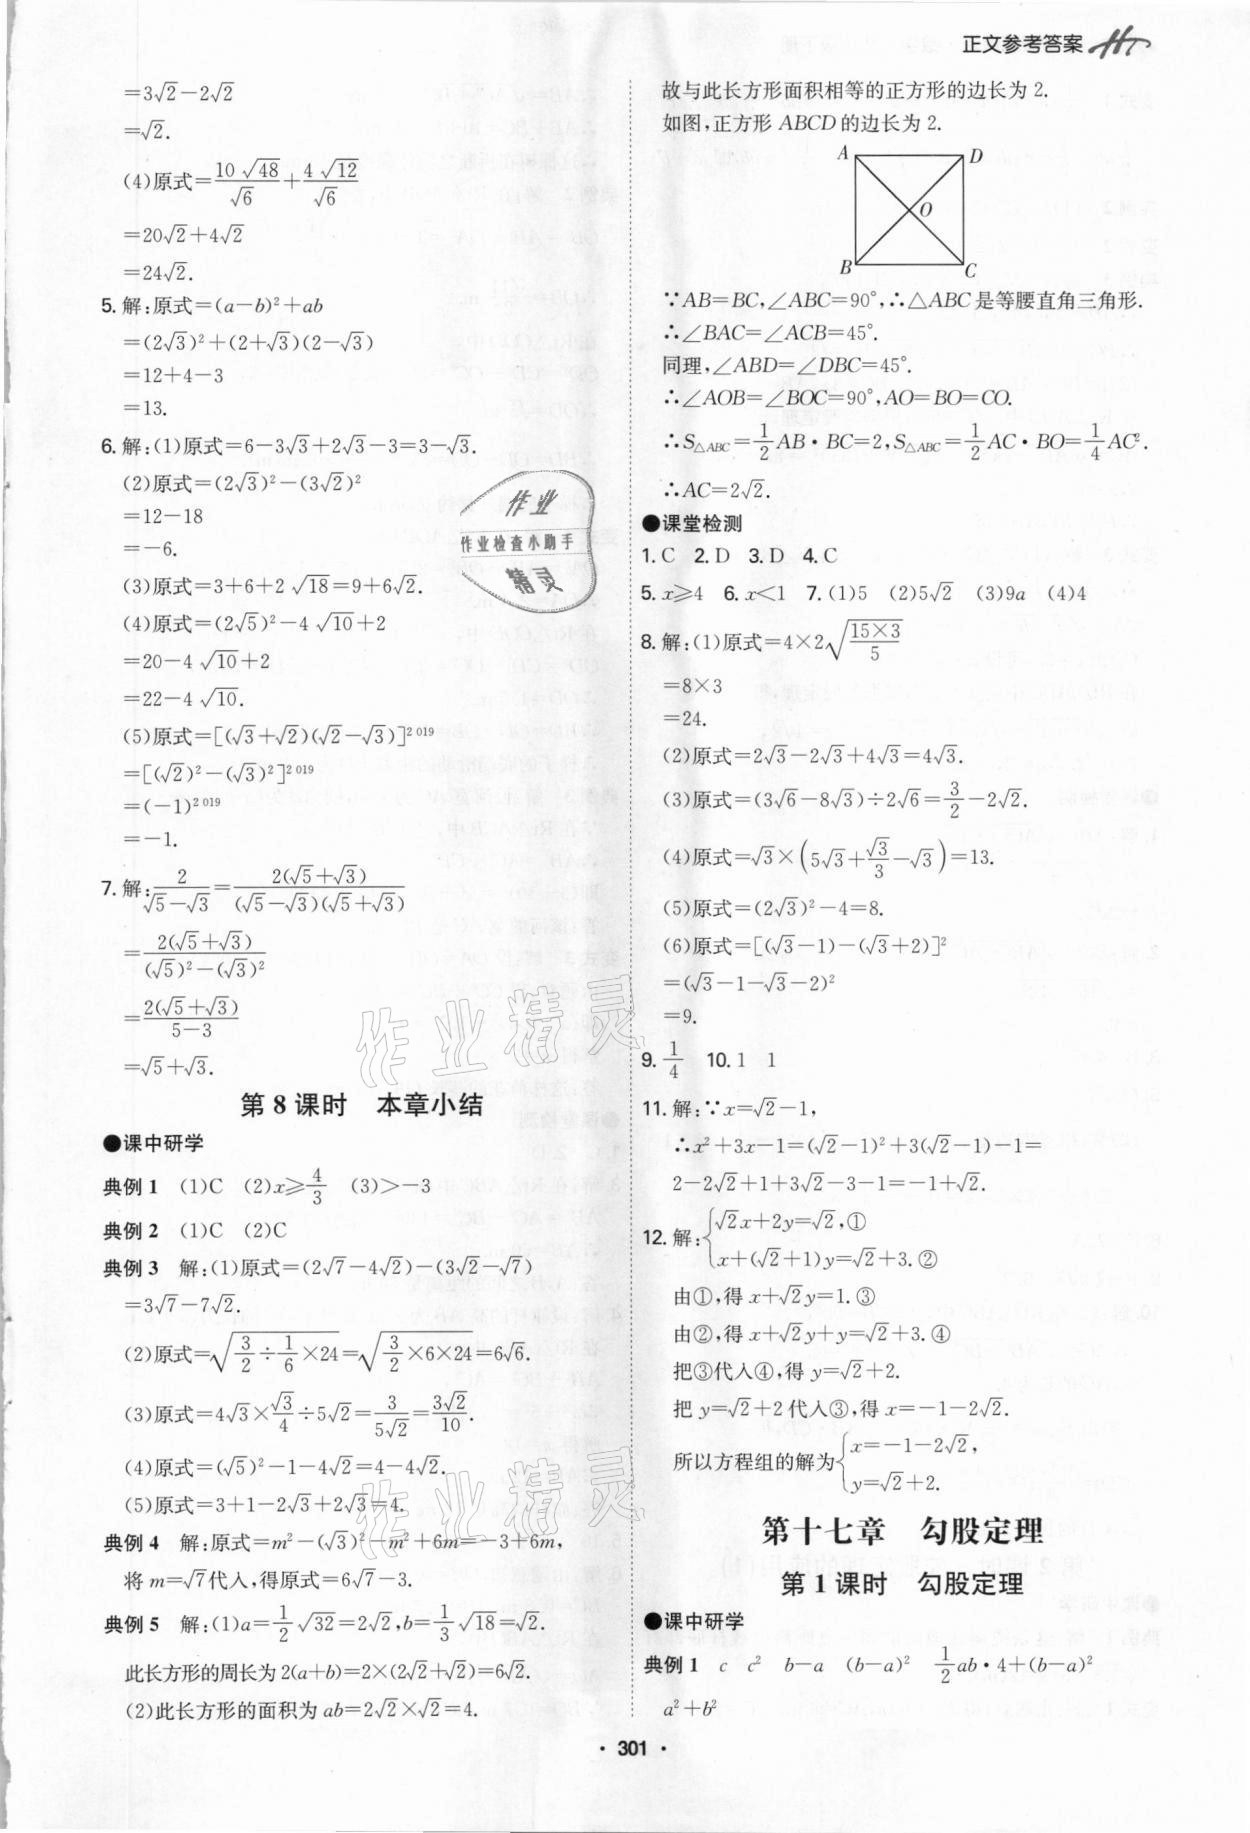 正文参考答案
=3√2-2√2
=√2.
(4)原式=10√48/√6+4√12/√6
=20√2+4√2
=24√2.
5.解:原式=(a-b)²+ab
=(2√3)²+(2+√3)(2-√3)
=12+4-3
=13.
6.解:(1)原式=6-3√3+2√3-3=3-√3.
(2)原式=(2√3)²-(3√2)²
=12-18
=-6.
(3)原式=3+6+2√18=9+6√2.
(4)原式=(2√5)²-4√10+2
=20-4√10+2
=22-4√10.
(5)原式=[(√3+√2)(√2-√3)]²⁰¹⁹
=[(√2)²-(√3)²]²⁰¹⁹
=(-1)²⁰¹⁹
=-1.
7.解:2/(√5-√3)=2(√5+√3)/((√5-√3)(√5+√3))
=2(√5+√3)/((√5)²-(√3)²)
=2(√5+√3)/(5-3)
=√5+√3.
第8课时 本章小结
●课中研学
典例1 (1)C (2)x≥4/3 (3)>-3
典例2 (1)C (2)C
典例3 解:(1)原式=(2√7-4√2)-(3√2-√7)
=3√7-7√2.
(2)原式=√(3/2÷1/6×24)=√(3/2×6×24)=6√6.
(3)原式=4√3×√3/4÷5√2=3/(5√2)=3√2/10.
(4)原式=(√5)²-1-4√2=4-4√2.
(5)原式=3+1-2√3+2√3=4.
典例4 解:原式=m²-(√3)²-m²+6m=-3+6m,
将m=√7代入,得原式=6√7-3.
典例5 解:(1)a=1/2√32=2√2,b=1/3√18=√2.
此长方形的周长为2(a+b)=2×(2√2+√2)=6√2.
(2)此长方形的面积为ab=2√2×√2=4.
故与此长方形面积相等的正方形的边长为2.
如图,正方形ABCD的边长为2.
A D
O
B C
∵AB=BC,∠ABC=90°,∴△ABC是等腰直角三角形.
∴∠BAC=∠ACB=45°.
同理,∠ABD=∠DBC=45°.
∴∠AOB=∠BOC=90°,AO=BO=CO.
∴S△ABC=1/2AB·BC=2,S△ABC=1/2AC·BO=1/4AC².
∴AC=2√2.
●课堂检测
1.C 2.D 3.D 4.C
5.x≥4 6.x<1 7.(1)5 (2)5√2 (3)9a (4)4
8.解:(1)原式=4×2√(15×3/5)
=8×3
=24.
(2)原式=2√3-2√3+4√3=4√3.
(3)原式=(3√6-8√3)÷2√6=3/2-2√2.
(4)原式=√3×(5√3+√3/3-√3)=13.
(5)原式=(2√3)²-4=8.
(6)原式=[(√3-1)-(√3+2)]²
=(√3-1-√3-2)²
=9.
9.1/4 10.1 1
11.解:∵x=√2-1,
∴x²+3x-1=(√2-1)²+3(√2-1)-1=
2-2√2+1+3√2-3-1=-1+√2.
12.解:{√2x+2y=√2,①
x+(√2+1)y=√2+3.②
由①,得x+√2y=1.③
由②,得x+√2y+y=√2+3.④
把③代入④,得y=√2+2.
把y=√2+2代入③,得x=-1-2√2.
所以方程组的解为{x=-1-2√2,
y=√2+2.
第十七章 勾股定理
第1课时 勾股定理
●课中研学
典例1 c c² b-a (b-a)² 1/2ab·4+(b-a)²
a²+b²
·301·
作业
作业检查小助手
精灵
作业精灵
作业精灵